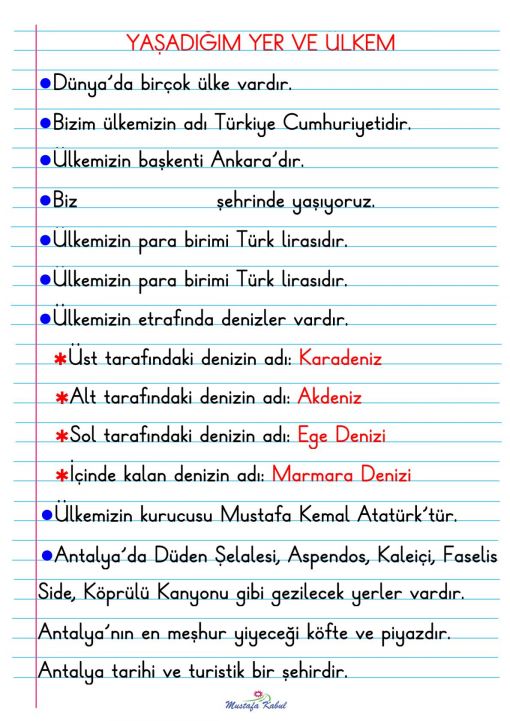 YAŞADIĞIM YER VE ULKEM
●Dünya'da birçok ülke vardır.
●Bizim ülkemizin adı Türkiye Cumhuriyetidir.
●Ülkemizin başkenti Ankara'dır.
●Biz şehrinde yaşıyoruz.
●Ülkemizin para birimi Türk lirasıdır.
●Ülkemizin para birimi Türk lirasıdır.
●Ülkemizin etrafında denizler vardır.
✱Üst tarafındaki denizin adı: Karadeniz
✱Alt tarafındaki denizin adı: Akdeniz
✱Sol tarafındaki denizin adı: Ege Denizi
✱İçinde kalan denizin adı: Marmara Denizi
●Ülkemizin kurucusu Mustafa Kemal Atatürk'tür.
●Antalya'da Düden Şelalesi, Aspendos, Kaleiçi, Faselis
Side, Köprülü Kanyonu gibi gezilecek yerler vardır.
Antalya'nın en meşhur yiyeceği köfte ve piyazdır.
Antalya tarihi ve turistik bir şehirdir.
Mustafa Kabul